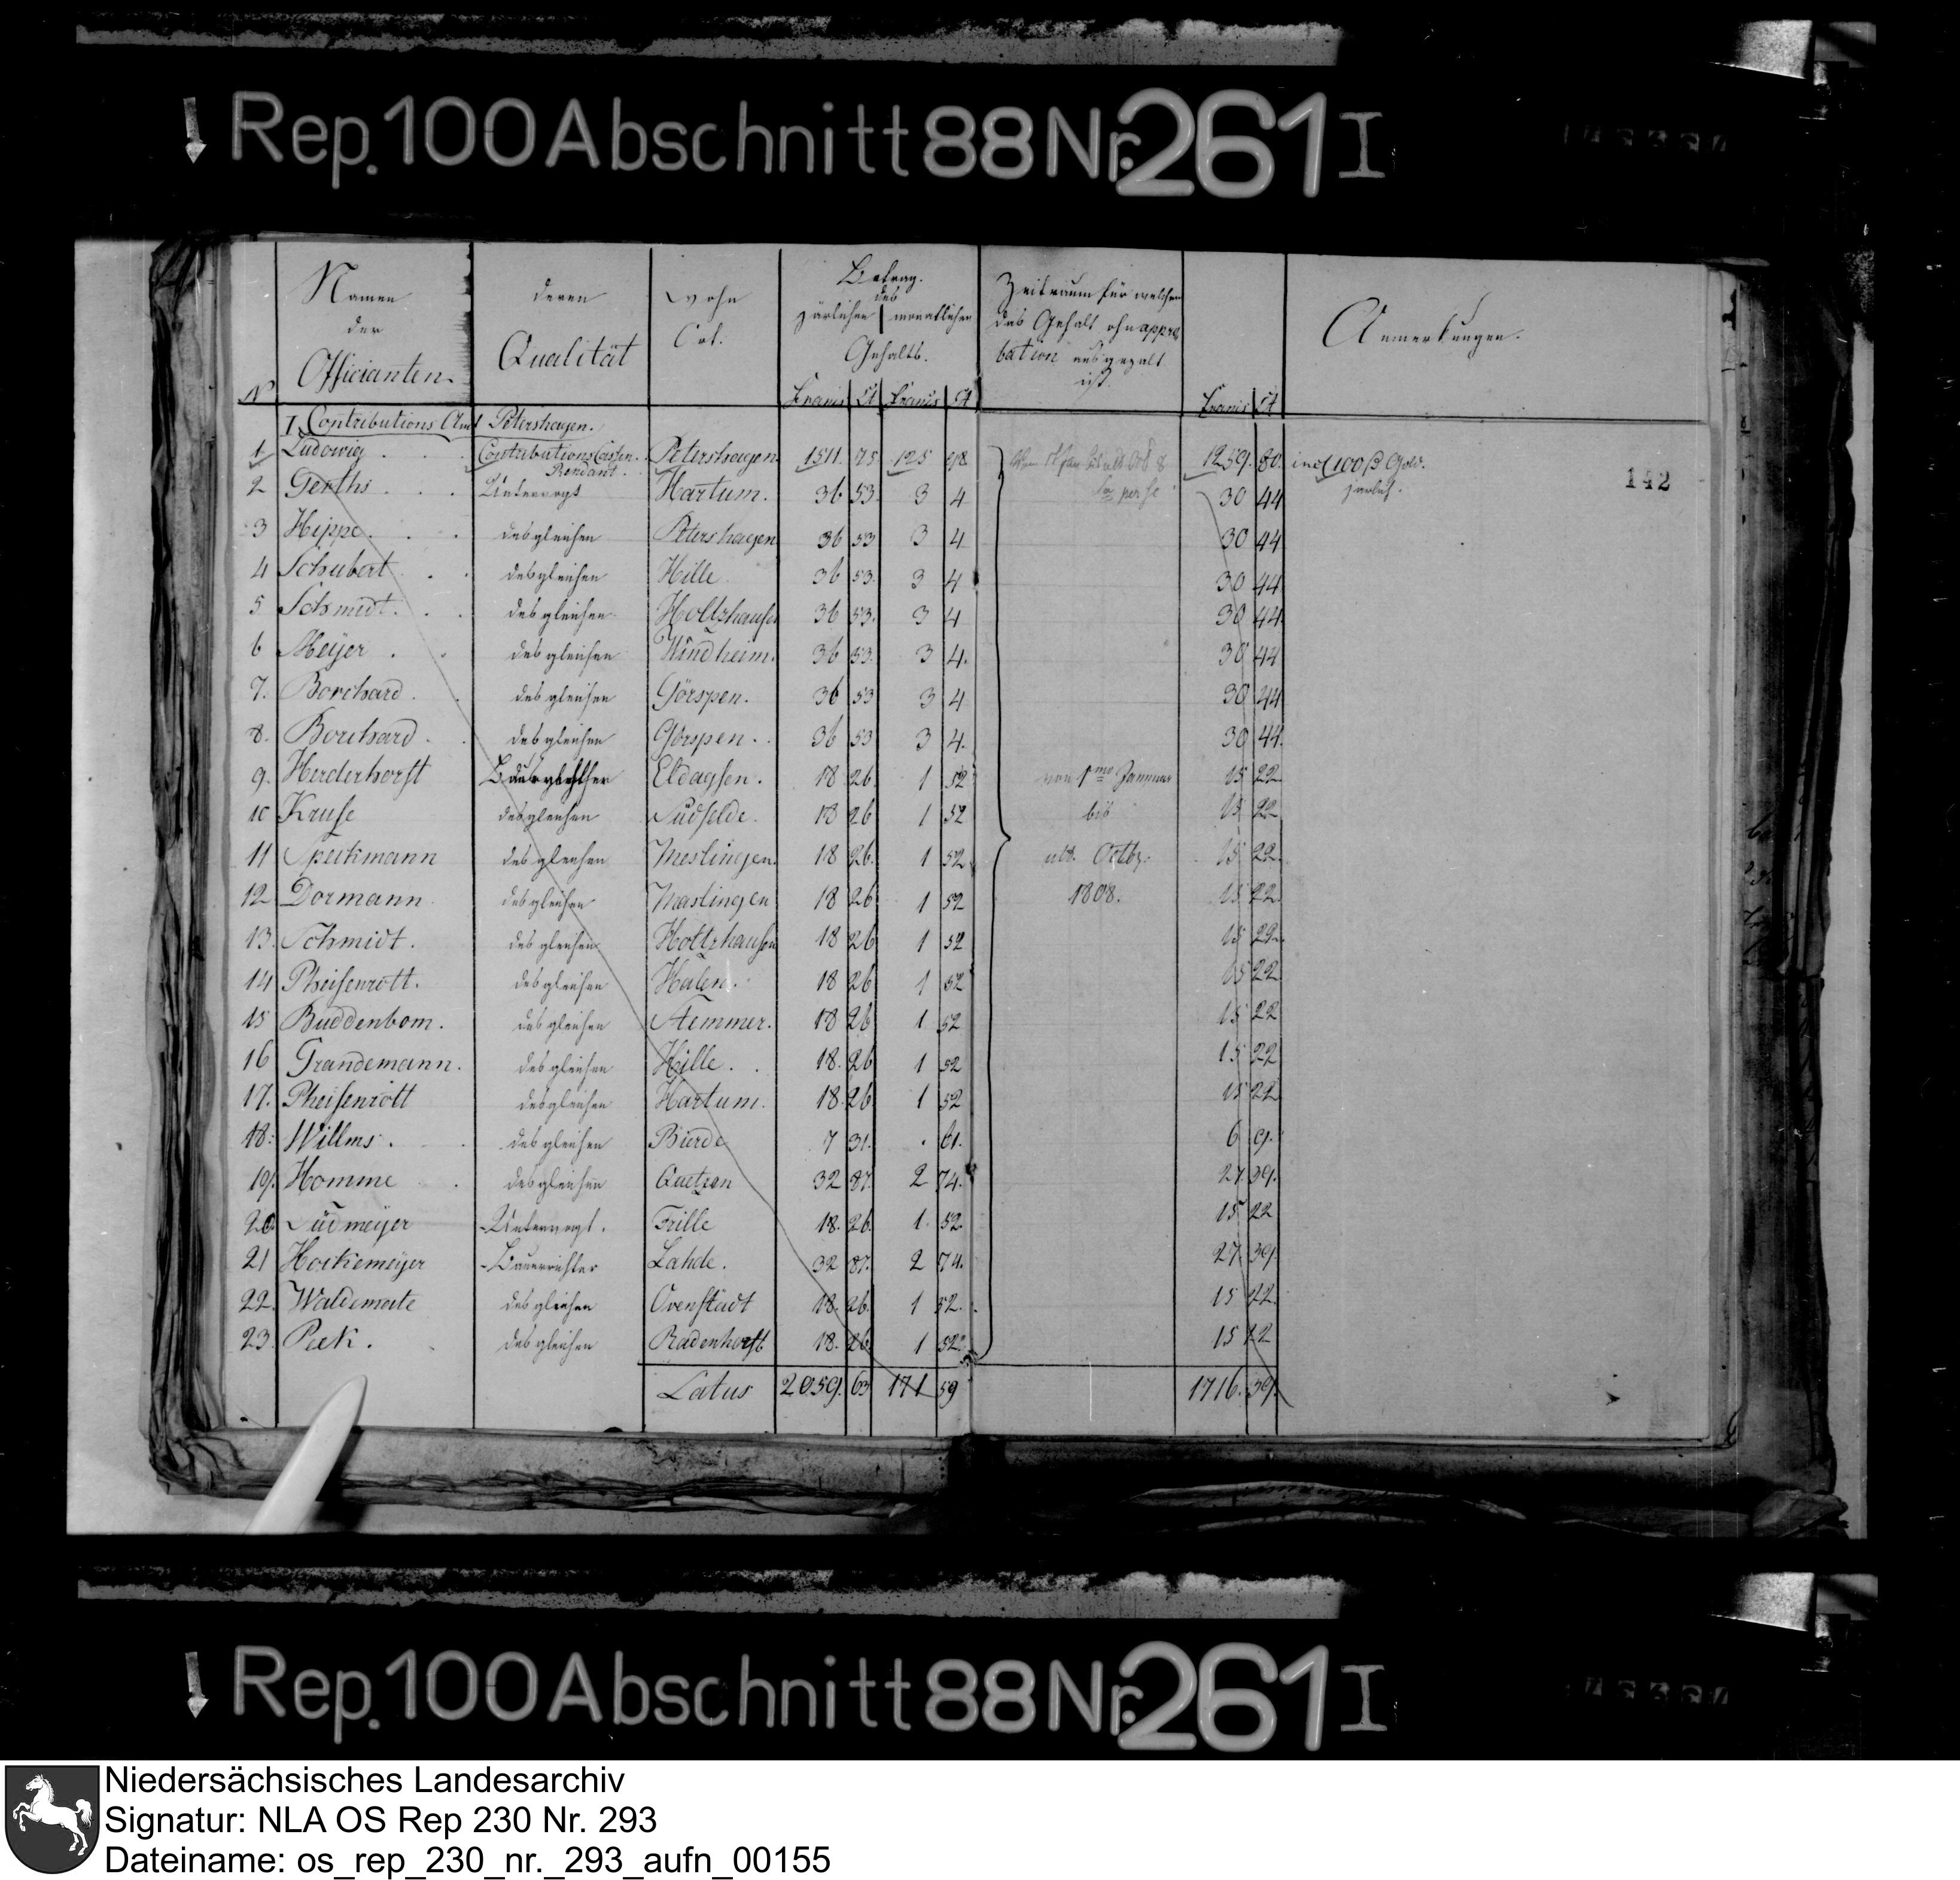 Rep. 100 Abschnitt 88 Nr. 261 I
Namen der Officianten. deren Qualität Wohn Ort. Betrag des järlichen monatlichen Gehalts. Zeitraum für welchen das Gehalt ohn appro bation ausgezalt ist. Anmerkungen.
N Francs Ct Francs Ct Francs Ct
I. Contributions Amt Petershagen.
1 Ludowig Contributions Cassen Rendant. Petershagen 1511. 75 125 98 1259. 80. incl 100 Gold. jarlich.
142
2 Gerths Untervogt Hartum. 36 53 3 4 30 44
3 Hippe desgleichen Petershagen 36 53 3 4 30 44
4 Schubert desgleichen Hille 36 53. 3 4 30 44
5 Schmidt. desgleichen Holtzhausen 36 53. 3 4 30 44.
6 Meijer desgleichen Windheim. 36 53. 3 4. 30 44
7. Borchard desgleichen Görspen. 36 53 3 4 30 44
8. Borchard desgleichen Görspen. 36 53 3 4. 30 44.
9. Herderhorst Eldagsen. 18 26. 1 52 von 1mo Januar 15 22
10 Kruse desgleichen Südfelde. 18 26 1 52 bis 15 22
11 Speckmann desgleichen Meslingen. 18 26. 1 52 ult. Octbr. 15 22
12 Dormann desgleichen Maslingen 18 26 1 52 1808. 15 22
13. Schmidt. desgleichen Holtzhausen 18 26 1 52 15 22
14 Pheisenrott. desgleichen Halen. 18 26 1 52 15 22
15 Buddenbom. desgleichen Stemmer. 18 26 1 52 15 22
16 Grandemann. desgleichen Hille. 18. 26 1 52 15 22
17. Pheisenrott desgleichen Hartum. 18. 26 1 52 15 22
18. Willms. desgleichen Bierde 7 31. . 61. 6 9.
19. Homme desgleichen Quetzen 32 87. 2 74. 27. 39.
20 Südmeijer Untervogt. Frille 18. 26. 1. 52. 15 22
21 Hoikemeijer Bauerrichter Lahde. 32 87. 2 74. 27. 39.
22. Waldemate desgleichen Ovenstädt 18. 26. 1 52. 15 22.
23. Peek. desgleichen Radenhorst 18. 26. 1 52. 15 22
Latus 2059. 63 171 59 1716. 39.
Rep. 100 Abschnitt 88 Nr. 261 I
Niedersächsisches Landesarchiv
Signatur: NLA OS Rep 230 Nr. 293
Dateiname: os_rep_230_nr._293_aufn_00155